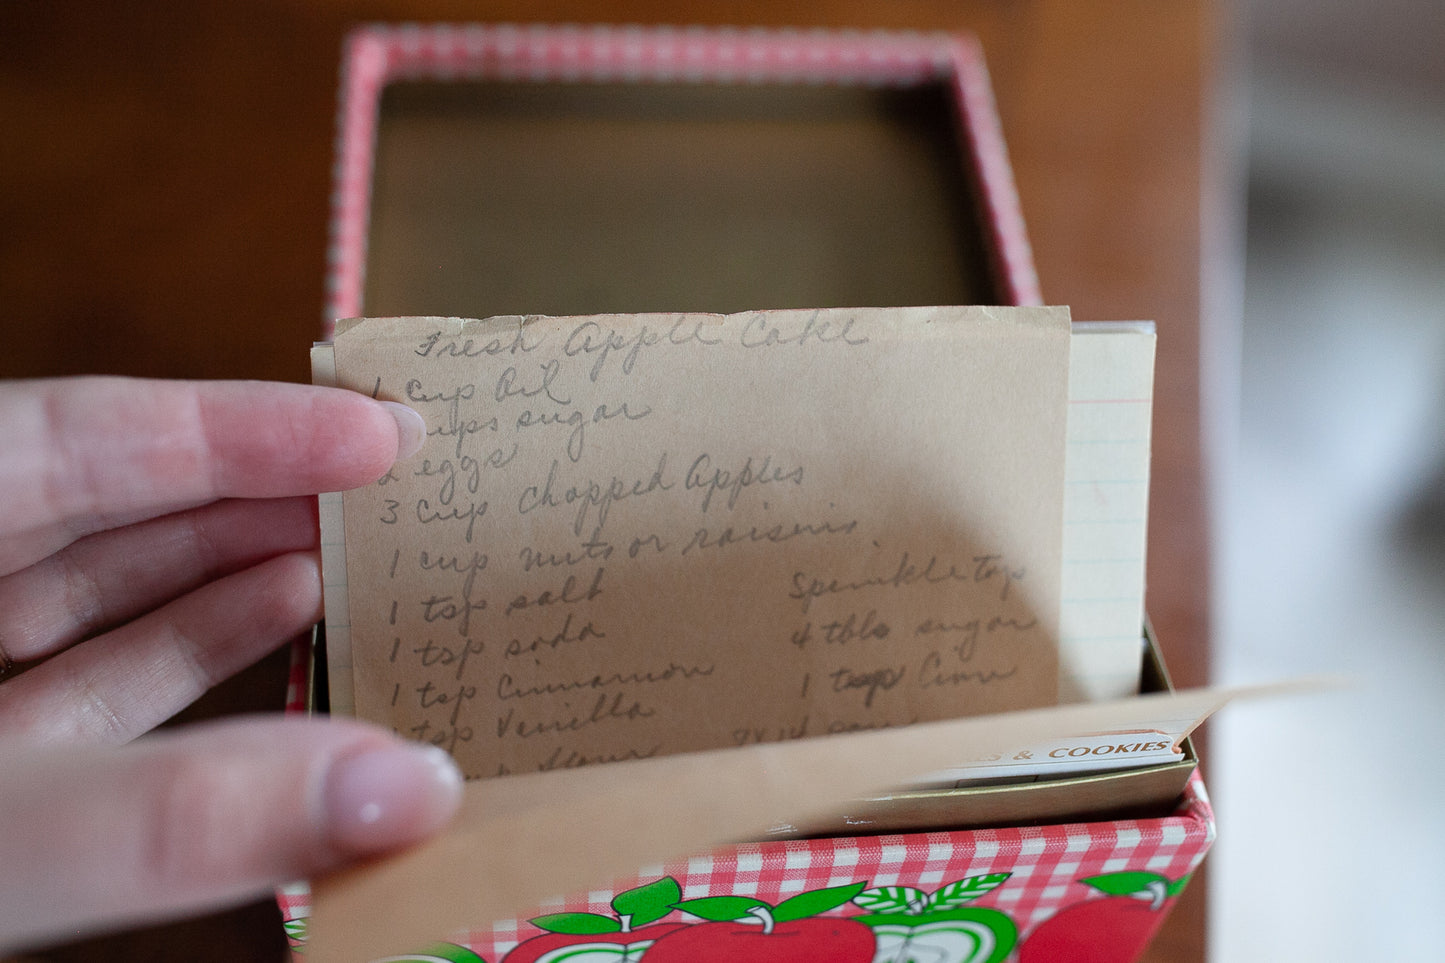 Fresh Apple Cake
1 cup Oil
cups sugar
2 eggs
3 cup chopped Apples
1 cup nuts or raisins
1 tsp salt
1 tsp soda
1 tsp Cinnamon
1 tsp Venilla
cup flour
Sprinkle top
4 tbls sugar
1 tsp Cinn
7 x 14 pan
& COOKIES